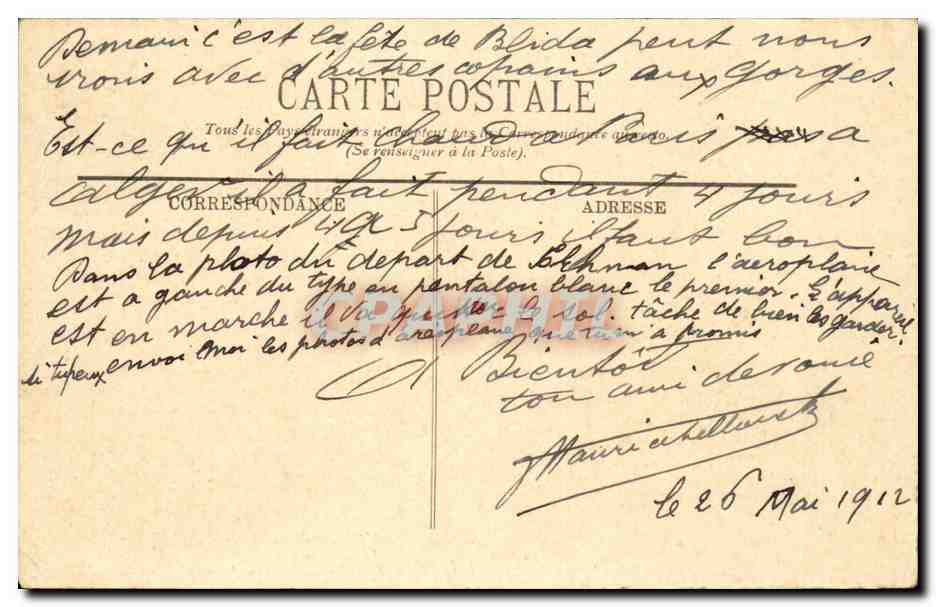 Demain c'est la fête de Blida peut nous
irons avec d'autres copains aux gorges.
CARTE POSTALE
Tous les Pays étrangers n'acceptent pas la Correspondance au recto.
Est-ce qu'il fait chaud a Paris a
(Se renseigner à la Poste).
alger il a fait pendant 4 jours
CORRESPONDANCE ADRESSE
mais depuis 4 a 5 jours il faut bon
Dans la photo du depart de l'aeroplane
est a gauche du type en pantalon blanc le premier. L'appareil
est en marche il va quitter le sol. tâche de bien les garder.
si tu peux envoi moi les photos d'areoplane que tu m'a promis
A Bientôt
ton ami dévoué
le 26 Mai 1912